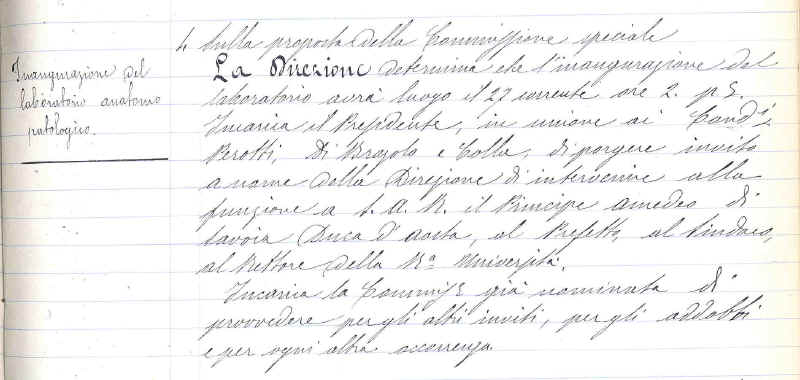 Inaugurazione del
laboratorio anatomo
patologico.
4. Sulla proposta della Commissione speciale
La Direzione determina che l'inaugurazione del
laboratorio avrà luogo il 27 corrente ore 2. p S.
Incarica il Presidente, in unione ai Cond.i
Perotti, Di Brajolo e Colla, di porgere invito
a nome della Direzione di intervenire alla
funzione a S. A. R. il Principe Amedeo di
Savoia Duca d'Aosta, al Prefetto, al Sindaco,
al Rettore della Ra Università.
Incarica la Commiss.e già nominata di
provvedere per gli altri inviti, per gli addobbi
e per ogni altra occorrenza